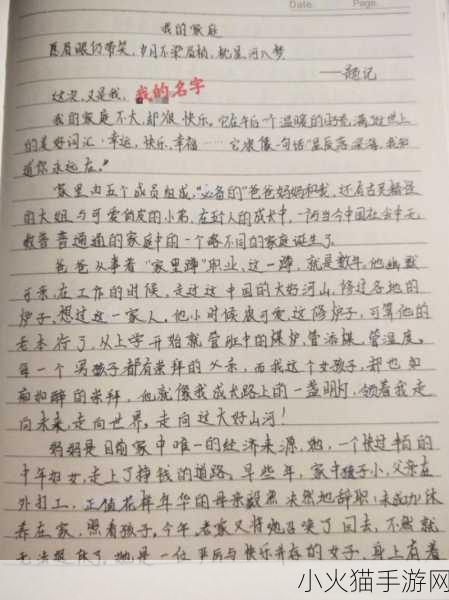 Date. Page.
我的家庭
愿眉眼仍带笑，岁月不染眉梢，枕星河入梦
——题记
这次，又是我，我的名字
我的家庭不大，却很快乐。它在午后一个温暖的
的美好词汇：幸运，快乐，幸福……它很像一句话"星辰落深海，我知
道你永远在。"
家里由五个成员组成，"必备的"爸爸妈妈和我，还有古灵精怪
的大姐与可爱的小弟，在五个人的成长中，一所当今中国社会中无
数普普通通的家庭中的一个略不同的家庭诞生了。
爸爸从事着"家里蹲"职业，这一蹲，就是数年。他幽默
可亲，在工作的时候，走过这中国的大好河山，修过各地的
炉子，想过这一家人。他小时候很可爱，这修炉子，可算他的
老本行了，从上学开始就管班中的煤炉，管添煤，管温度。
每一个男孩子都有崇拜的父亲，而我这个女孩子，却也如
痴如醉的崇拜，他就像我成长路上的一盏明灯，领着我走
向未来，走向世界，走向这大好山河！
妈妈是目前家中唯一的经济来源，她，一个快过半百的
中年妇女，走上了挣钱的道路。早些年，家中孩子小，父亲在
外打工，正值花样年华的母亲毅然决然地辞职
在家，照看孩子。今年，老家又将她召唤了回去，不然就
无法她是一位严厉与快乐并存的女子，身上有着
小火猫手游网